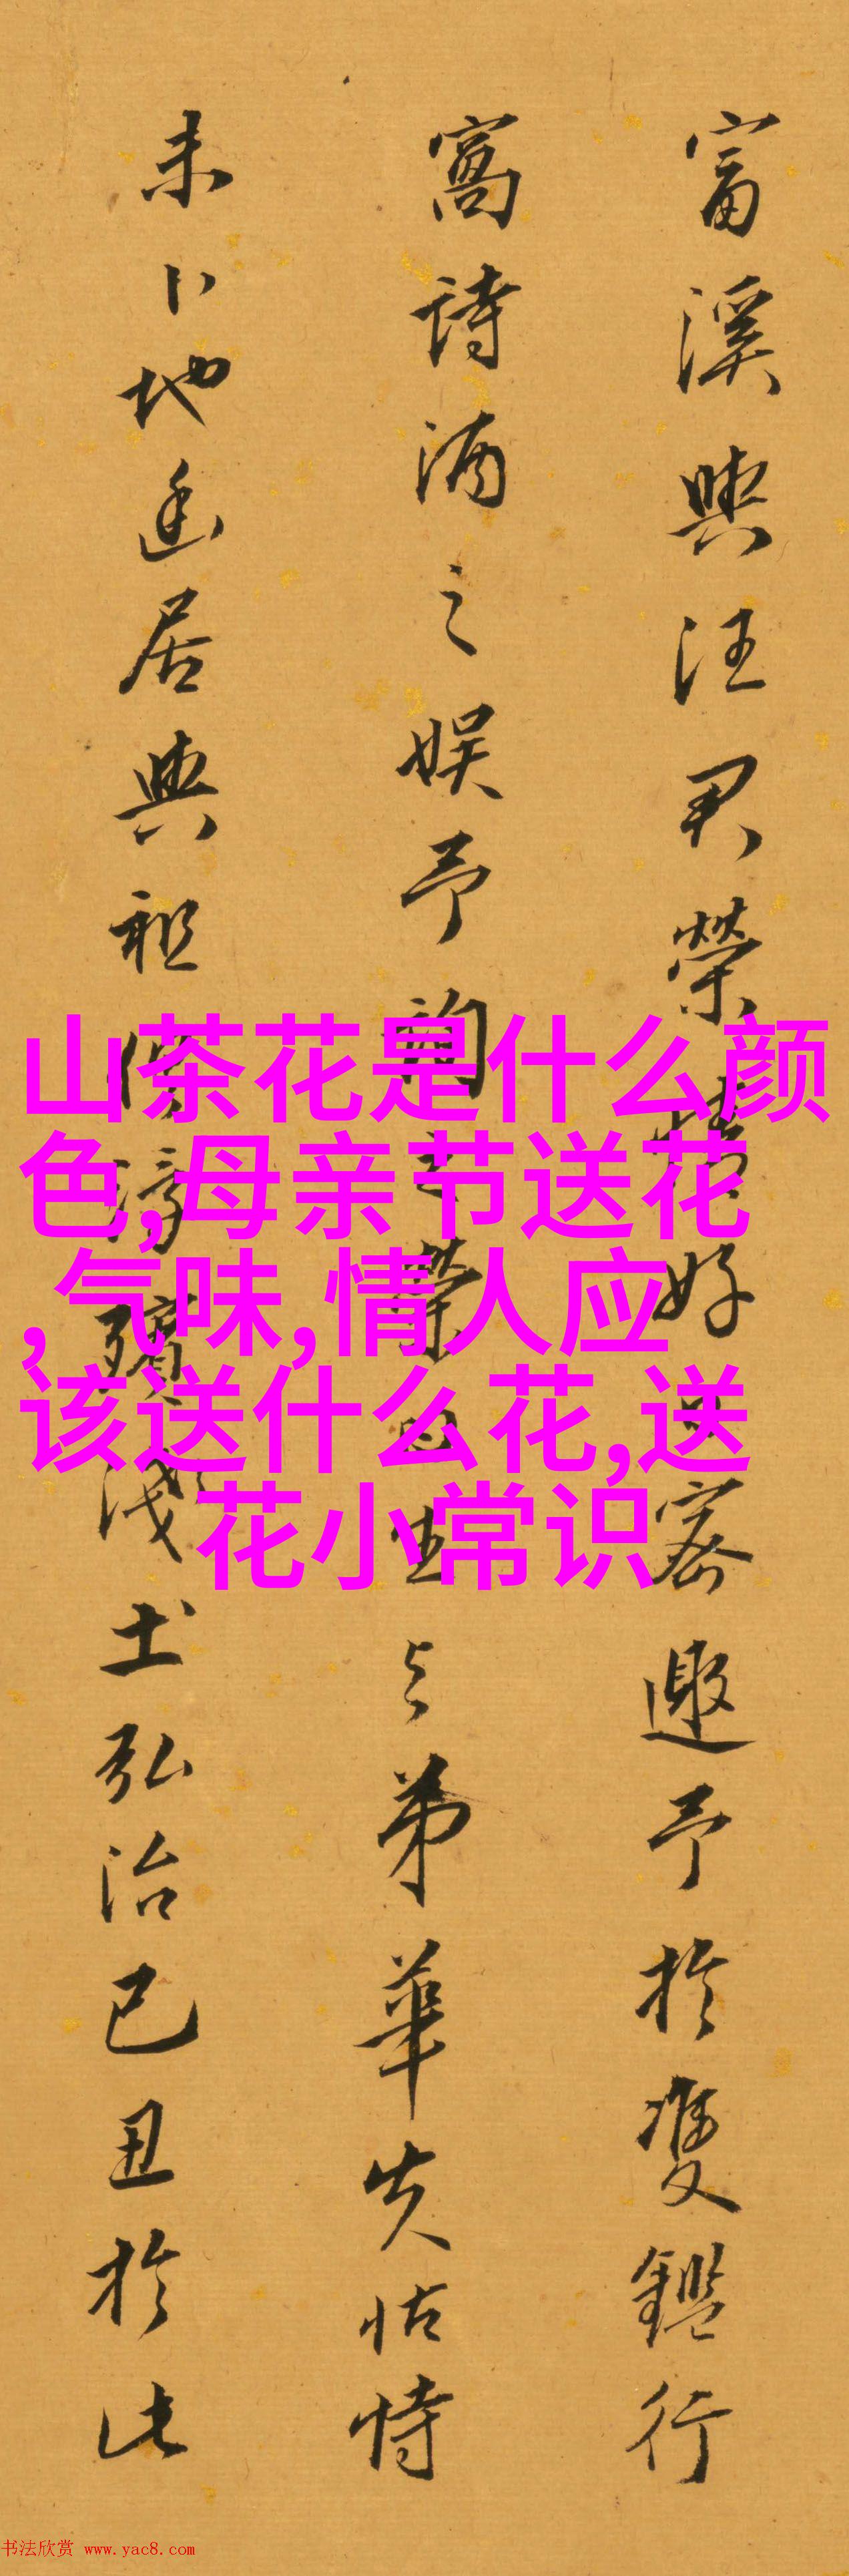 富溪與汪君榮
好客邀予於雙鑑行
窩詩酒之娱予詢之榮
生之弟華失怙恃
未卜地遷居與祖
淺土弘治己丑於此
山茶花是什么颜
色,母亲节送花
,气味,情人应
该送什么花,送
花小常识
书法欣赏 www.yac8.com